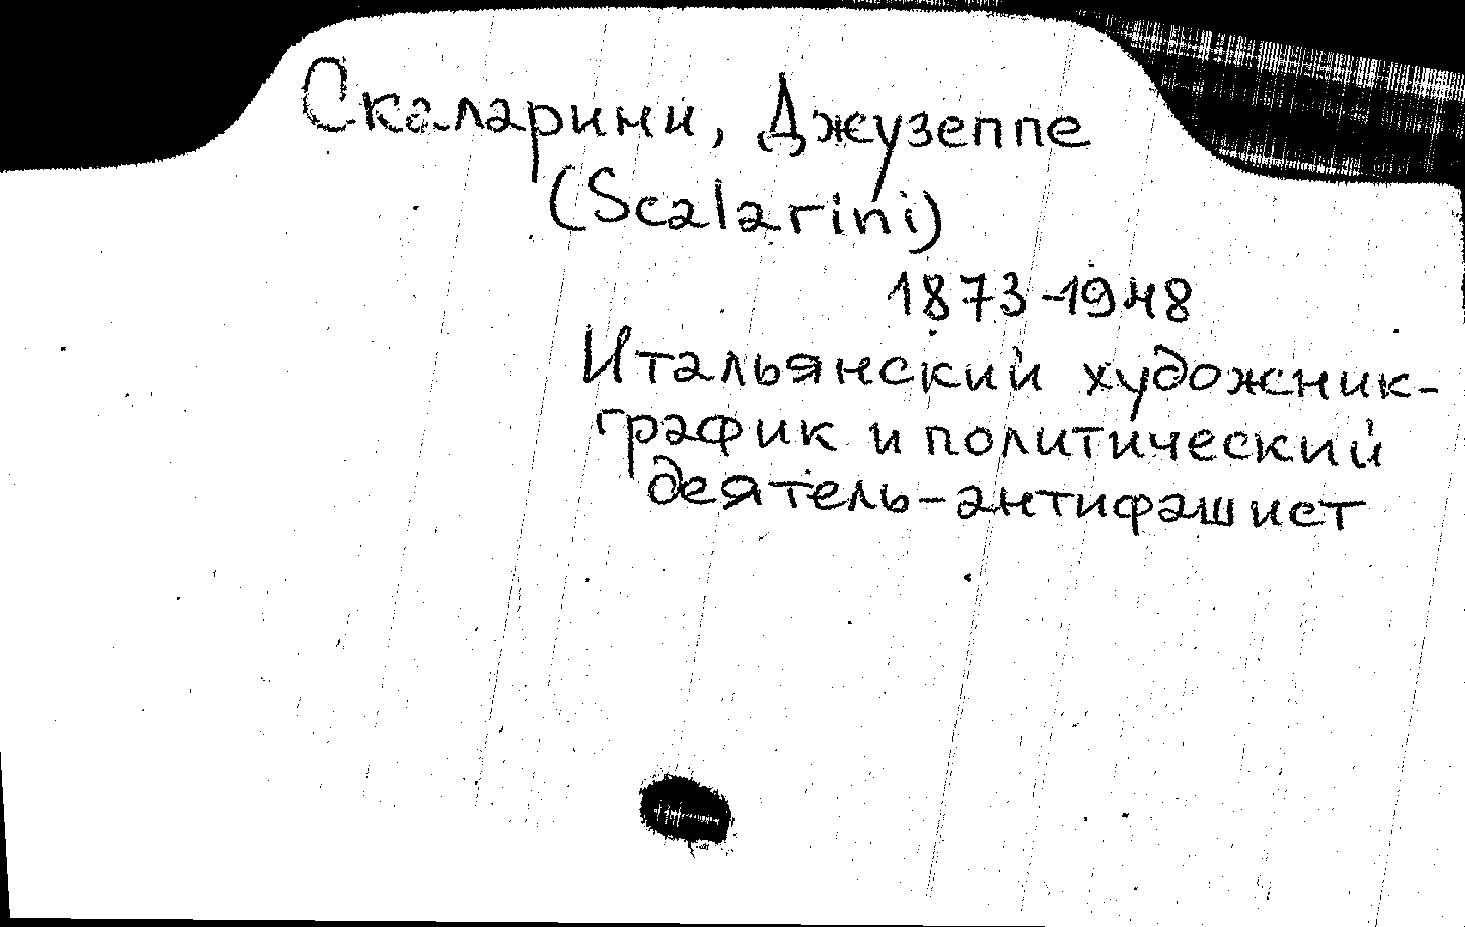 Скаларини, Джузеппе
(Scalarini)
1873-1948
Итальянский художник-
график и политический
деятель-антифашист